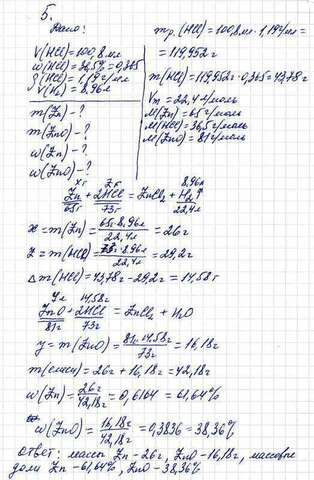 5.
Дано:
V(HCl)=100,8 мл
ω(HCl)=36,5%=0,365
ρ(HCl)=1,19 г/мл
V(H₂)=8,96 л
m(Zn)-?
m(ZnO)-?
ω(Zn)-?
ω(ZnO)-?
m р.(HCl)=100,8 мл·1,19 г/мл=
=119,952 г
m(HCl)=119,952 г·0,365=43,78 г
Vm=22,4 л/моль
M(Zn)=65 г/моль
M(HCl)=36,5 г/моль
M(ZnO)=81 г/моль
x г z г 8,96 л
Zn + 2HCl = ZnCl₂ + H₂↑
65 г 73 г 22,4 л
x = m(Zn) = 65 г·8,96 л / 22,4 л = 26 г
z = m(HCl) = 73 г·8,96 л / 22,4 л = 29,2 г
Δm(HCl)=43,78 г-29,2 г=14,58 г
14,58 г
ZnO + 2HCl = ZnCl₂ + H₂O
81 г 73 г
y = m(ZnO) = 81 г·14,58 г / 73 г = 16,18 г
m(смеси)=26 г+16,18 г=42,18 г
ω(Zn)= 26 г / 42,18 г = 0,6164 = 61,64%
ω(ZnO)= 16,18 г / 42,18 г = 0,3836 = 38,36%
Ответ: массы Zn-26 г, ZnO-16,18 г, массовые
доли Zn-61,64%, ZnO-38,36%